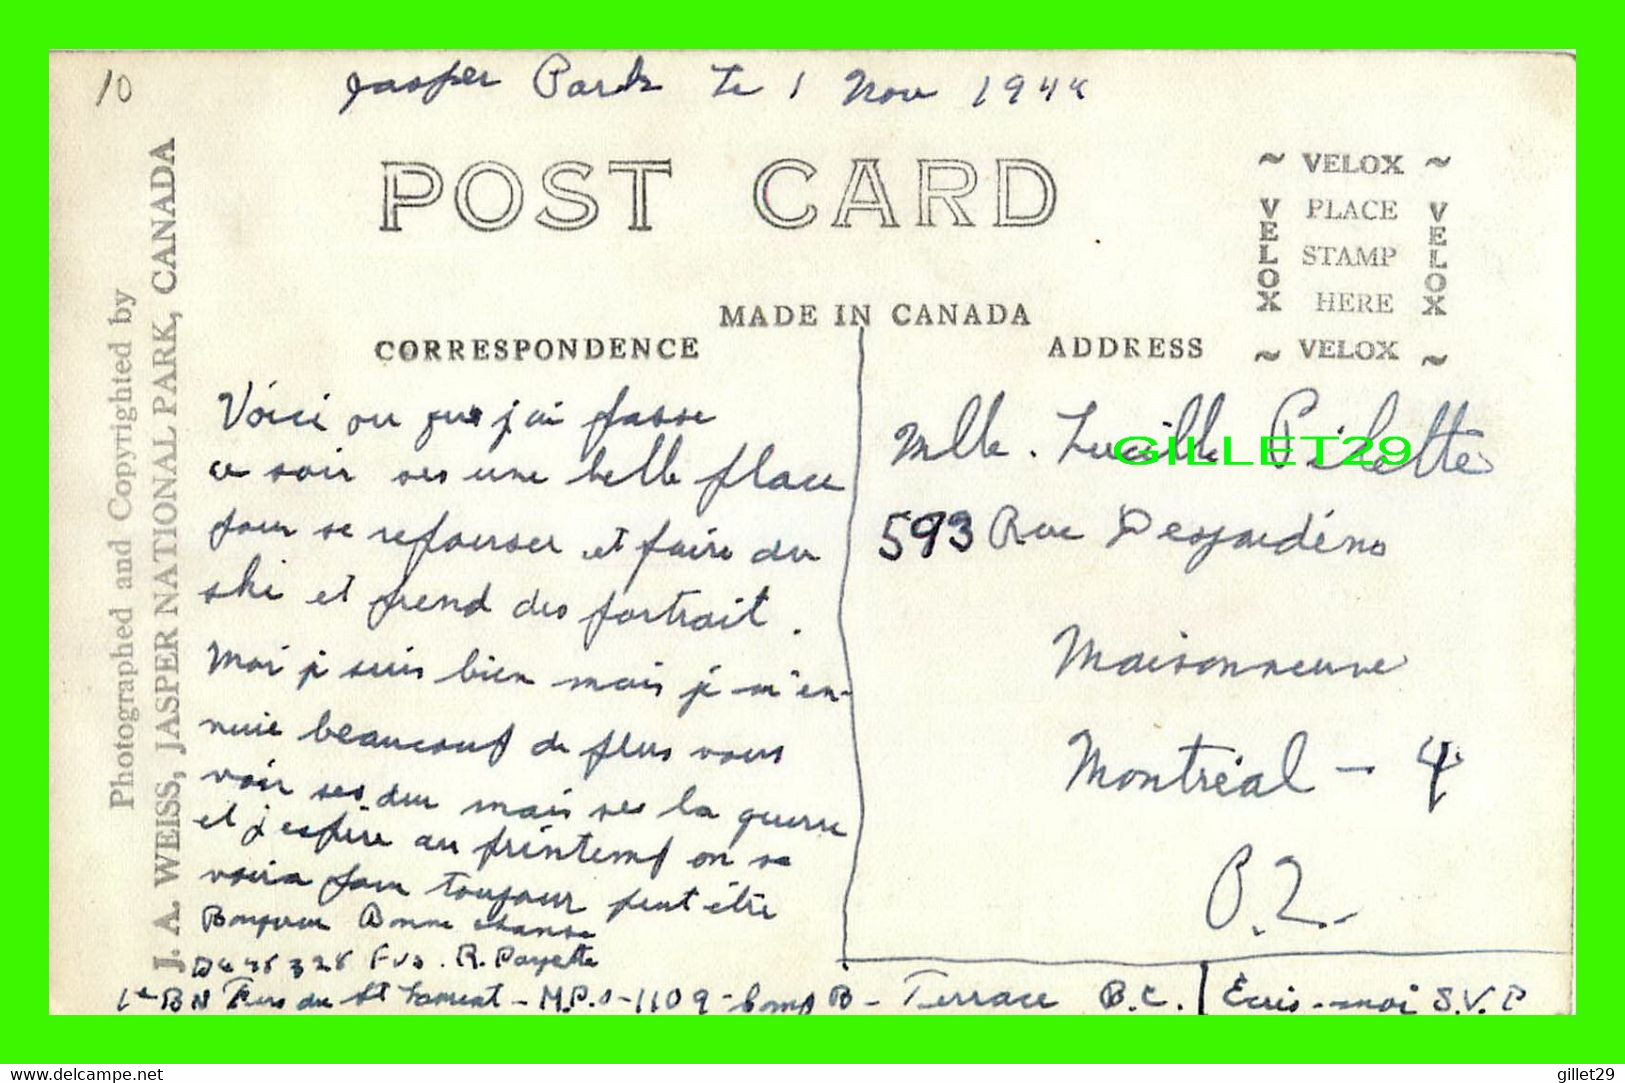 10
Jasper Park Le 1 Nov 1944
POST CARD
~ VELOX ~
VELOX PLACE VELOX
STAMP
HERE
~ VELOX ~
MADE IN CANADA
CORRESPONDENCE
ADDRESS
Photographed and Copyrighted by
J. A. WEISS, JASPER NATIONAL PARK, CANADA
Voici ou que j'ai passe
ce soir ses une belle place
pour se repourser et faire du
ski et prend des portrait.
Moi je suis bien mais je m'en-
nuie beaucoup de plus vous
voir ses dur mais ses la guerre
et j'espère au printemp on se
voira pour toujour peut être
Bonjour Bonne chance
Fus. R. Payette
1er BN Fus du St Laurent - M.P.O - 1109 - Comp B - Terrace B.C. | Écris-moi S.V.P
Mlle. Lucille Pilette
593 Rue Desjardins
Maisonneuve
Montréal - 4
P.Q.
GILLET29
www.delcampe.net
gillet29